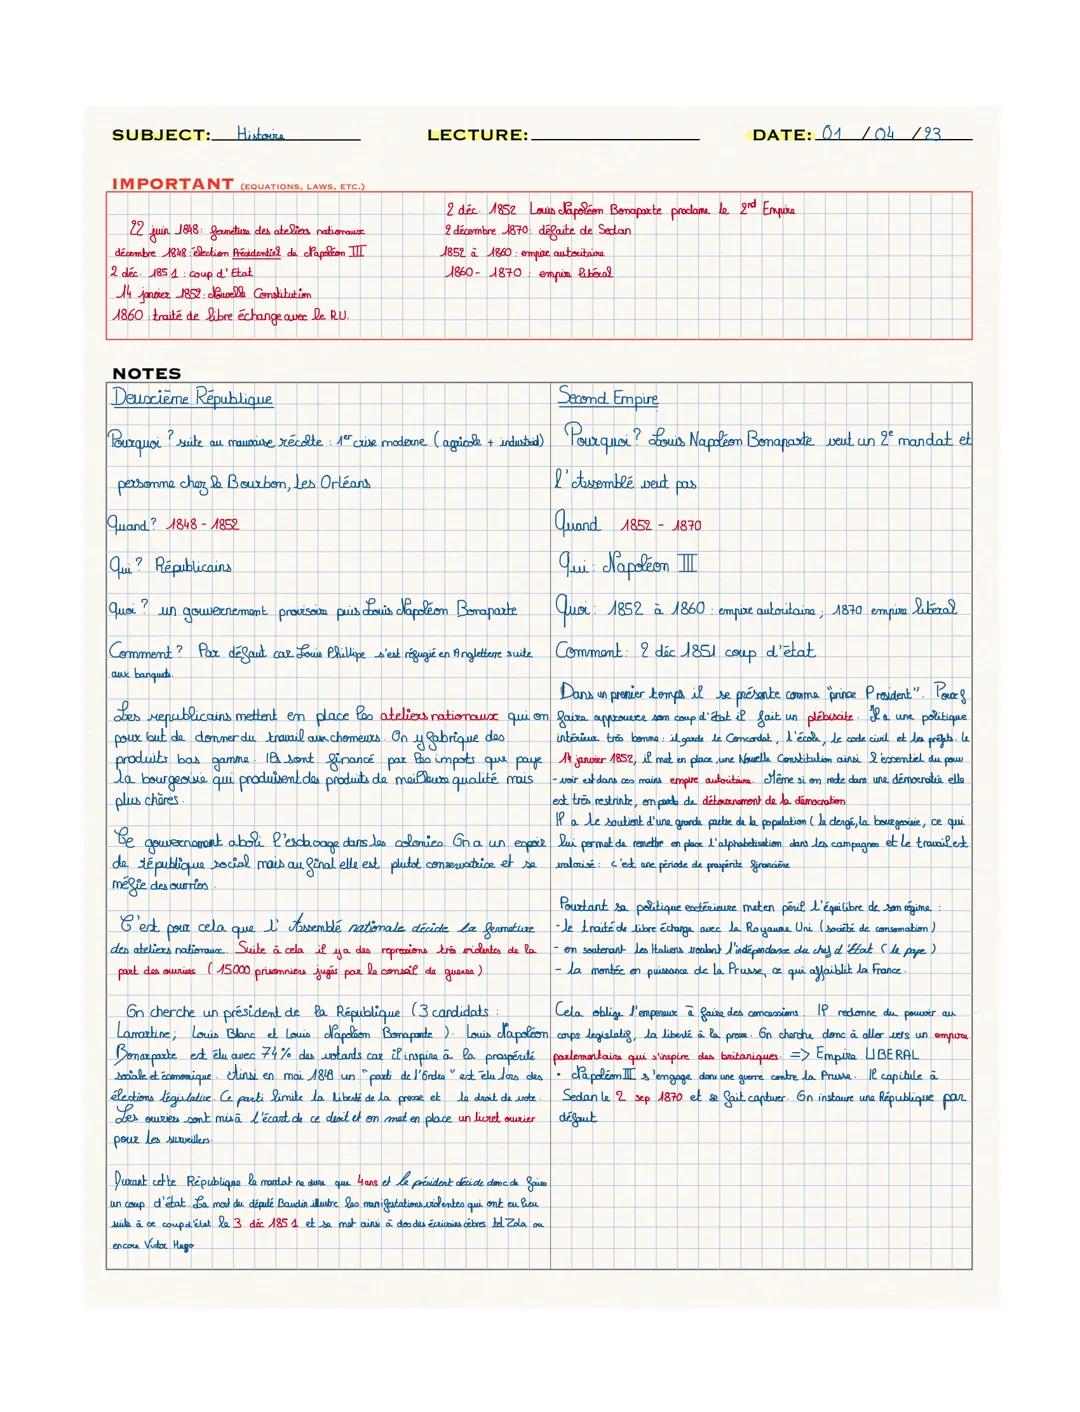 SUBJECT: Histoire
LECTURE:
DATE: 01 / 04 / 23
IMPORTANT (EQUATIONS, LAWS, ETC.)
22 juin 1848: fermeture des ateliers nationaux
décembre 1848: élection Présidentiel de Napoléon III
2 déc. 1851: coup d'Etat
14 janvier 1852: Nouvelle Constitution
1860: traité de libre échange avec le R.U.
2 déc. 1852 Louis Napoléon Bonaparte proclame le 2nd Empire
2 décembre 1870: défaite de Sedan
1852 à 1860: empire autoritaire
1860 - 1870: empire libéral
NOTES
Deuxième République
Pourquoi? suite au mauvaise récolte: 1er crise moderne (agricole + industriel)
personne chez le Bourbon, Les Orléans
Quand? 1848 - 1852
Qui? Républicains
Quoi? un gouvernement provisoire puis Louis Napoléon Bonaparte
Comment? Par défaut car Louis Phillipe s'est réfugié en Angletterre suite
aux banquets.
Les republicains mettent en place les ateliers nationaux qui on
pour but de donner du travail aux chomeurs. On y fabrique des
produits bas gamme. Ils sont financé par les impots que paye
la bourgeoisie qui produisent des produits de meilleure qualité mais
plus chères.
Ce gouvernement aboli l'esclavage dans les colonies. On a un espoir
de république social mais au final elle est plutot conservatrice et se
méfie des ouvriers.
C'est pour cela que l'Assemblé nationale décide la fermeture
des ateliers nationaux. Suite à cela il y a des repressions très violentes de la
part des ouvriers (15000 prisonniers jugés par le conseil de guerre)
On cherche un président de la République (3 candidats:
Lamartine; Louis Blanc et Louis Napoléon Bonaparte). Louis Napoléon
Bonarparte est élu avec 74% des votants car il inspire à la prospérité
sociale et économique. Ainsi en mai 1848 un "parti de l'Ordre" est élu lors des
élections législative. Ce parti limite la liberté de la presse et le droit de vote.
Les ouvriers sont mis à l'écart de ce droit et on met en place un livret ouvrier
pour les surveillers.
Durant cette République le mandat ne dure que 4 ans et le président décide donc de faire
un coup d'état. La mort du député Baudin illustre les manifestations violentes qui ont eu lieu
suite à ce coup d'état le 3 déc 1851 et se met ainsi à dos des écrivains célèbres tel Zola ou
encore Victor Hugo
Second Empire
Pourquoi? Louis Napoléon Bonaparte veut un 2e mandat et
l'Assemblé veut pas
Quand 1852 - 1870
Qui: Napoléon III
Quoi: 1852 à 1860: empire autoritaire; 1870 empire libéral
Comment: 2 déc 1851 coup d'état
Dans un premier temps il se présente comme "prince President". Pour
faire approuver son coup d'état il fait un plébiscite. Il a une politique
intérieur très bonne: il garde le Concordat, l'école, le code civil et les préfets. Le
14 janvier 1852, il met en place une Nouvelle Constitution ainsi l'essentiel du pouv
-voir est dans ces mains empire autoritaire. Même si on reste dans une démocratie elle
est très restrinte, on parle de détournement de la démocration
Il a le soutient d'une grande partie de la population (le clergé, la bourgeoisie, ce qui
lui permet de remettre en place l'alphabétisation dans les campagnes et le travail est
valorisé: c'est une période de prospérité financière
Pourtant sa politique extérieure met en péril l'équilibre de son régime:
- le traité de libre échange avec le Royaume Uni (société de consomation)
- en soutenant les Italiens voulant l'indépendance du chef d'Etat (le pape)
- la montée en puissance de la Prusse, ce qui affaiblit la France.
Cela oblige l'empereur à faire des concessions. Il redonne du pouvoir au
corps legislatif, la liberté à la presse. On cherche donc à aller vers un empire
parlementaire qui s'inspire des britaniques. => Empire LIBERAL
• Napoléon III s'engage dans une guerre contre la Prusse. Il capitule à
Sedan le 2 sep 1870 et se fait capturer. On instaure une République par
défaut